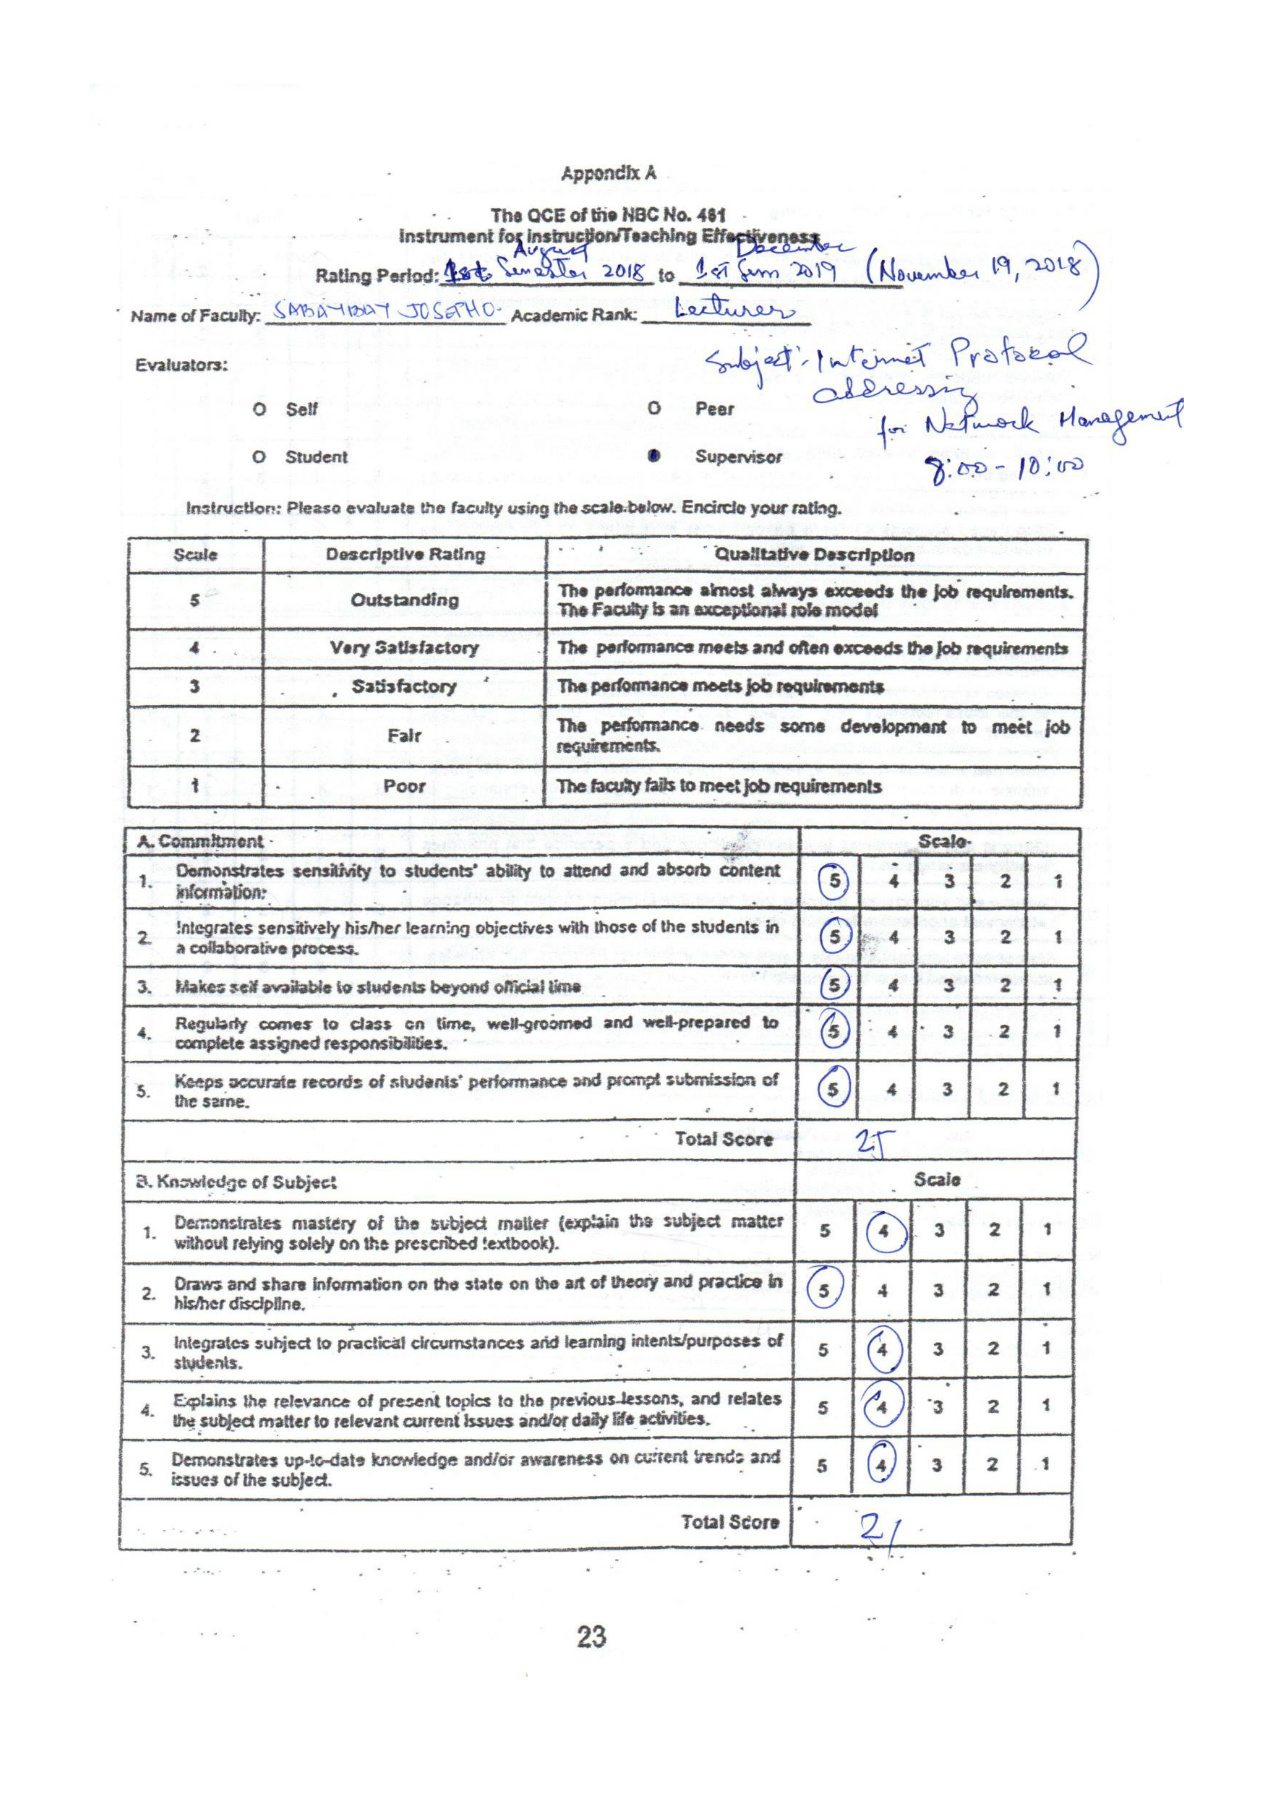 Appendix A
The QCE of the NBC No. 461
Instrument for Instruction/Teaching Effectiveness
August December
Rating Period: 1st Semester 2018 to 1st Sem 2019 (November 19, 2018)
Name of Faculty: Academic Rank: Lecturer
Evaluators:
Subject: Internet Protocol
addressing
for Network Management
8:00 - 10:00
O Self O Peer
O Student Supervisor
Instruction: Please evaluate the faculty using the scale below. Encircle your rating.
Scale Descriptive Rating Qualitative Description
5 Outstanding The performance almost always exceeds the job requirements.
The Faculty is an exceptional role model
4 Very Satisfactory The performance meets and often exceeds the job requirements
3 Satisfactory The performance meets job requirements
2 Fair The performance needs some development to meet job
requirements.
1 Poor The faculty fails to meet job requirements
A. Commitment Scale
1. Demonstrates sensitivity to students' ability to attend and absorb content
information. 5 4 3 2 1
2. Integrates sensitively his/her learning objectives with those of the students in
a collaborative process. 5 4 3 2 1
3. Makes self available to students beyond official time 5 4 3 2 1
4. Regularly comes to class on time, well-groomed and well-prepared to
complete assigned responsibilities. 5 4 3 2 1
5. Keeps accurate records of students' performance and prompt submission of
the same. 5 4 3 2 1
Total Score 25
B. Knowledge of Subject Scale
1. Demonstrates mastery of the subject matter (explain the subject matter
without relying solely on the prescribed textbook). 5 4 3 2 1
2. Draws and share information on the state on the art of theory and practice in
his/her discipline. 5 4 3 2 1
3. Integrates subject to practical circumstances and learning intents/purposes of
students. 5 4 3 2 1
4. Explains the relevance of present topics to the previous lessons, and relates
the subject matter to relevant current issues and/or daily life activities. 5 4 3 2 1
5. Demonstrates up-to-date knowledge and/or awareness on current trends and
issues of the subject. 5 4 3 2 1
Total Score 21
23